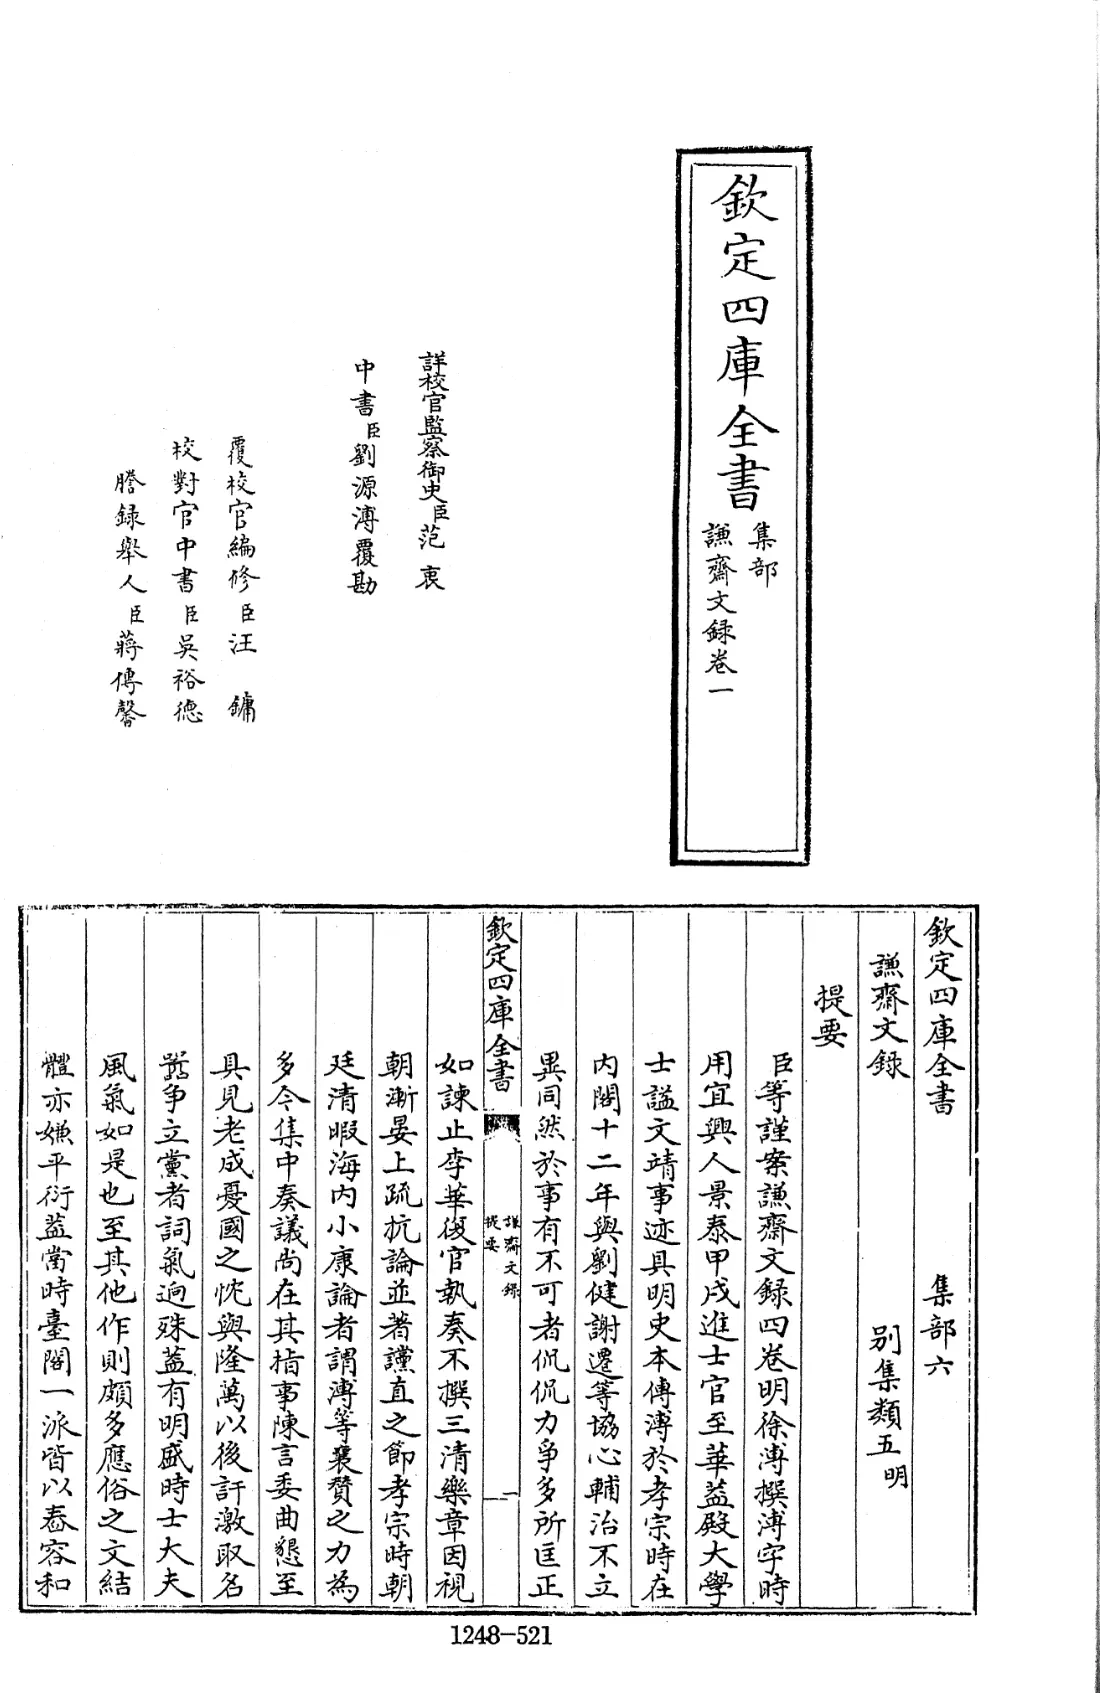 欽定四庫全書
集部
謙齋文録卷一
詳校官監察御史臣范衷
中書臣劉源溥覆勘
覆校官編修臣汪鏞
校對官中書臣吳裕德
謄録舉人臣蔣傳馨
欽定四庫全書 集部六
謙齋文録 別集類五明
提要
臣等謹案謙齋文録四卷明徐溥撰溥字時
用宜興人景泰甲戌進士官至華蓋殿大學
士謚文靖事迹具明史本傳溥於孝宗時在
内閣十二年與劉健謝遷等協心輔治不立
異同然於事有不可者侃侃力爭多所匡正
欽定四庫全書
謙齋文録
提要
一
如諫止李華復官執奏不撰三清樂章因視
朝漸晏上疏抗論並著讜直之節孝宗時朝
廷清暇海内小康論者謂溥等襄贊之力為
多今集中奏議尚在其指事陳言委曲懇至
具見老成憂國之忱與隆萬以後訐激取名
嚣争立黨者詞氣逈殊蓋有明盛時士大夫
風氣如是也至其他作則頗多應俗之文結
體亦嫌平衍蓋當時臺閣一派皆以舂容和
1248-521